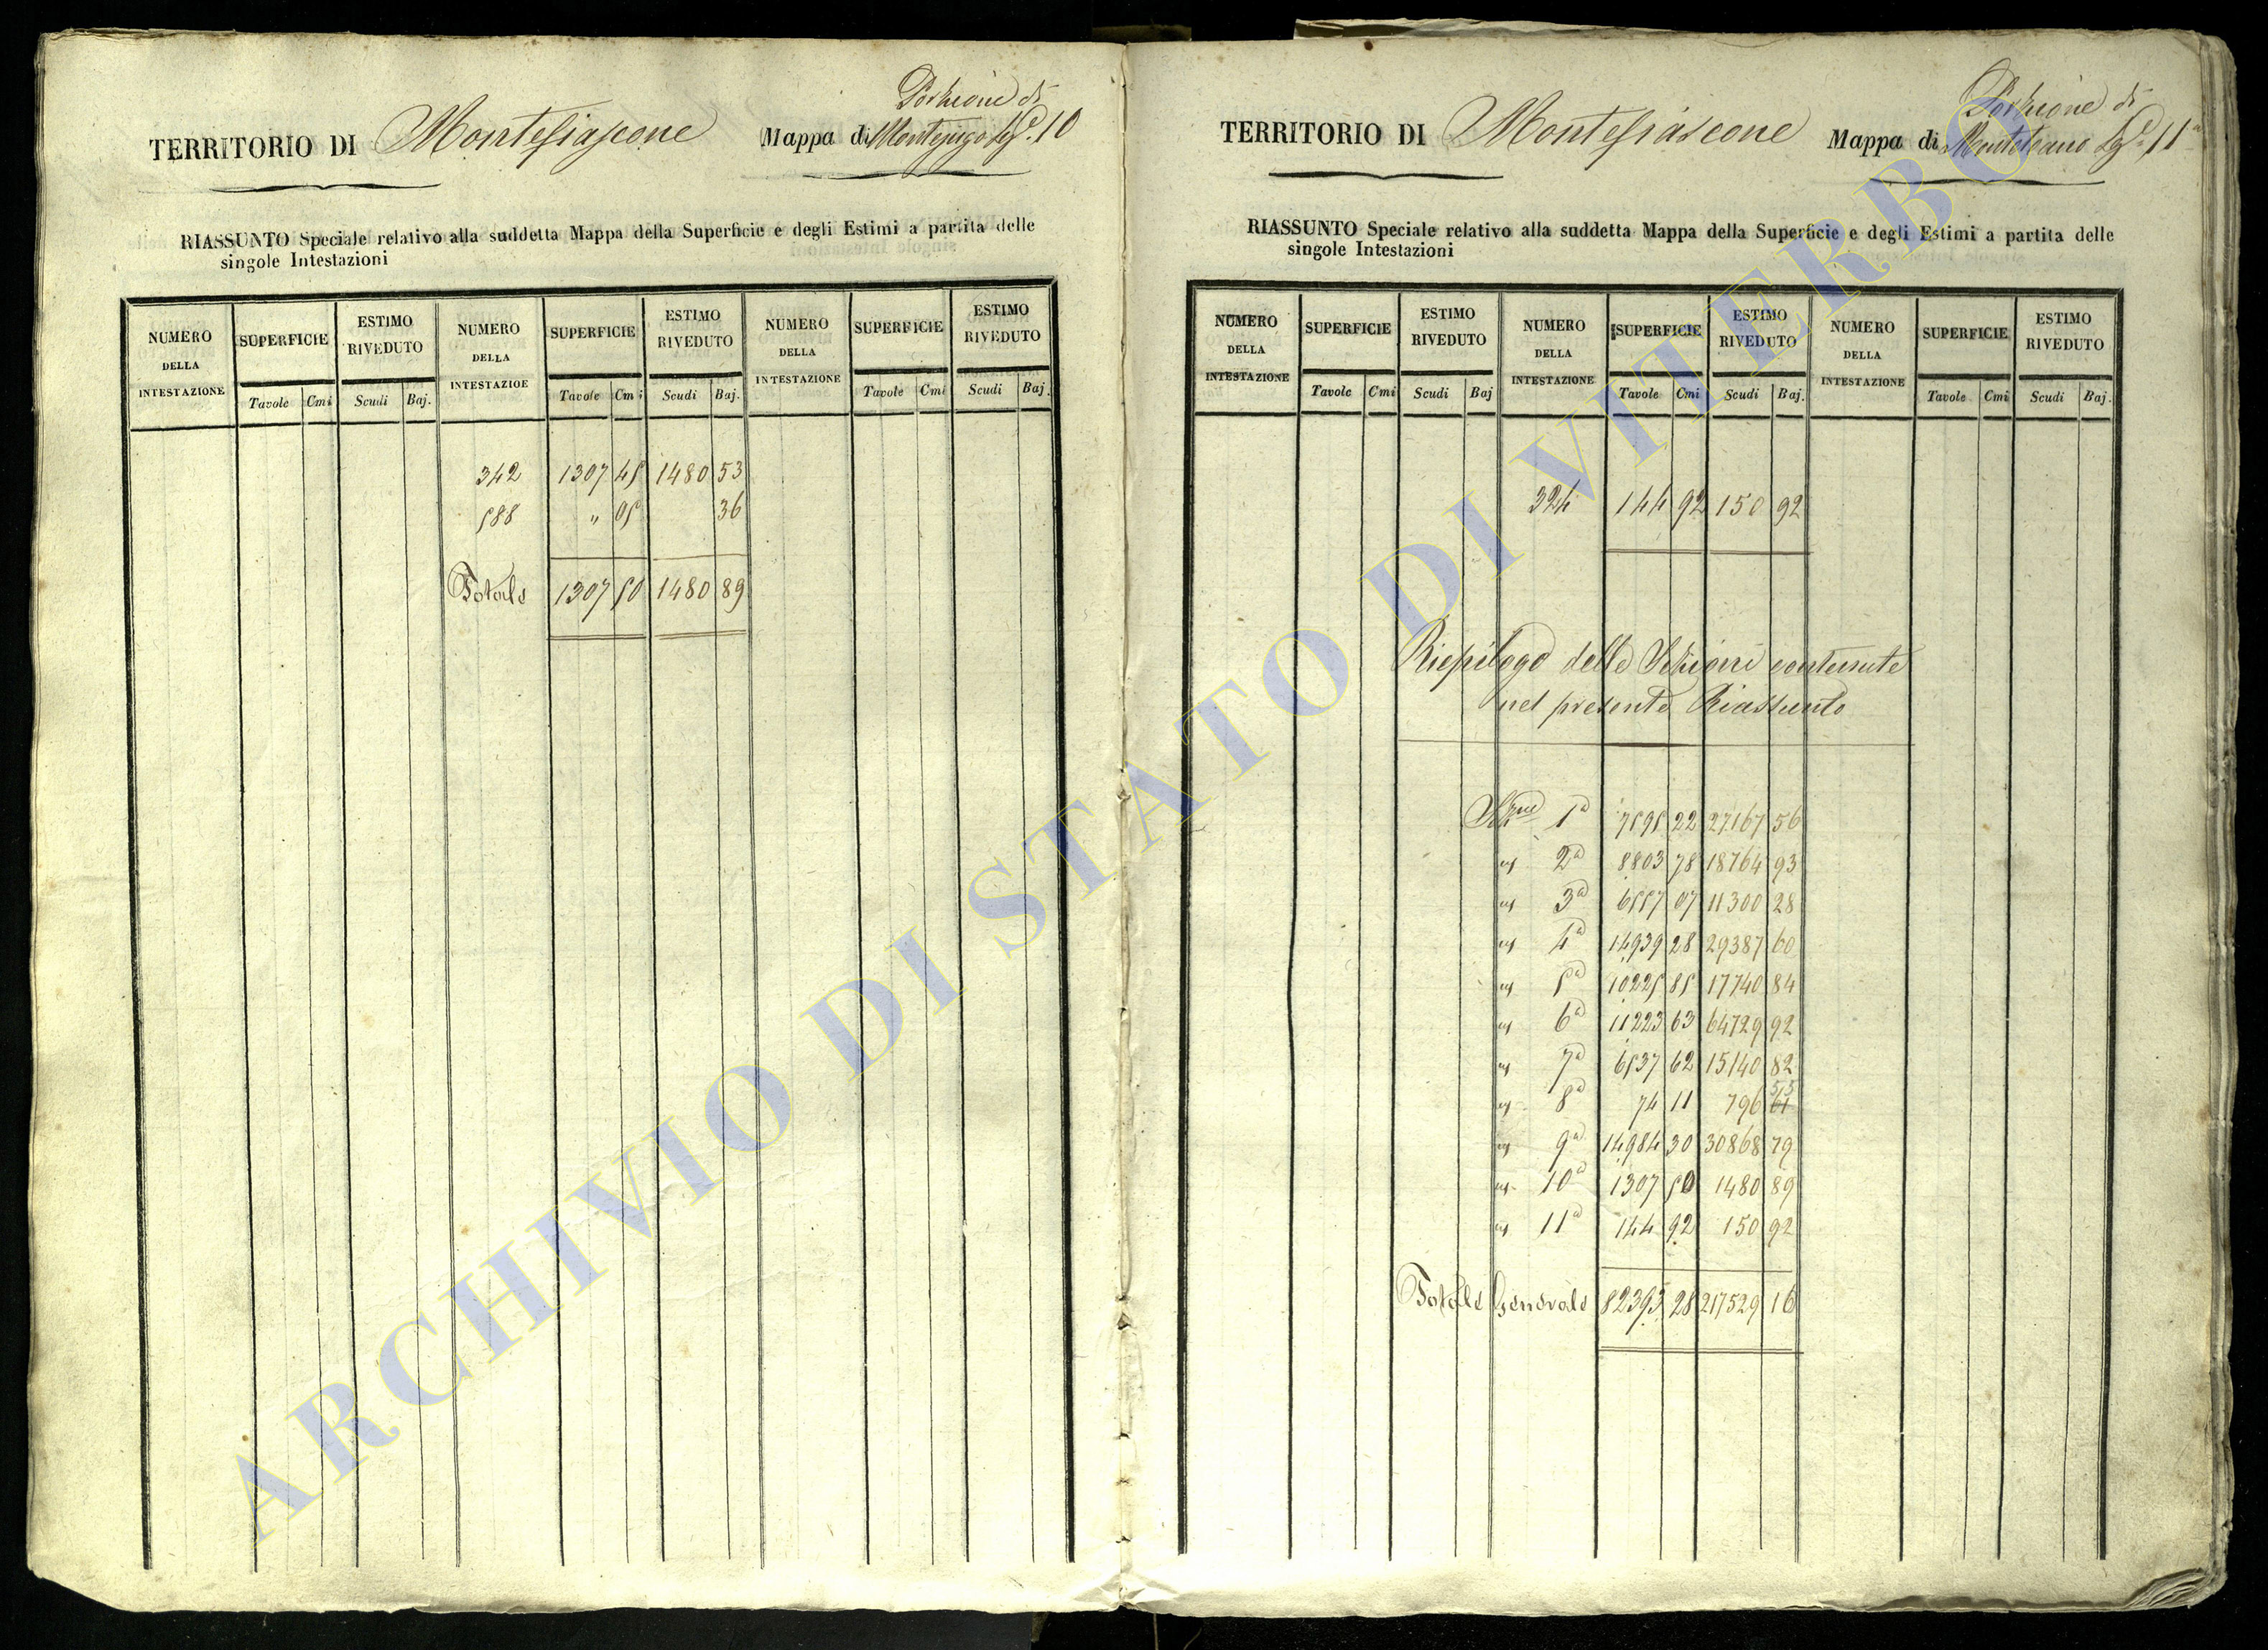 Porzione di
TERRITORIO DI Montefiascone Mappa di Montejugo 10
RIASSUNTO Speciale relativo alla suddetta Mappa della Superficie e degli Estimi a partita delle
singole Intestazioni
NUMERO DELLA INTESTAZIONE SUPERFICIE ESTIMO RIVEDUTO NUMERO DELLA INTESTAZIOE SUPERFICIE ESTIMO RIVEDUTO NUMERO DELLA INTESTAZIONE SUPERFICIE ESTIMO RIVEDUTO
Tavole Cmi Scudi Baj. Tavole Cmi Scudi Baj. Tavole Cmi Scudi Baj.
342 1307 45 1480 53
588 " 05 36
Totale 1307 50 1480 89
Porzione di
TERRITORIO DI Montefiascone Mappa di 11a
RIASSUNTO Speciale relativo alla suddetta Mappa della Superficie e degli Estimi a partita delle
singole Intestazioni
NUMERO DELLA INTESTAZIONE SUPERFICIE ESTIMO RIVEDUTO NUMERO DELLA INTESTAZIONE SUPERFICIE ESTIMO RIVEDUTO NUMERO DELLA INTESTAZIONE SUPERFICIE ESTIMO RIVEDUTO
Tavole Cmi Scudi Baj Tavole Cmi Scudi Baj. Tavole Cmi Scudi Baj.
324 144 92 150 92
Riepilogo delle Sezioni contenute
nel presente Riassunto
Sezne 1a 7595 22 27167 56
2a 8803 78 18764 93
3a 6557 07 11300 28
4a 14939 28 29387 60
5a 10225 85 17740 84
6a 11223 63 64729 92
7a 6537 62 15140 82
8a 74 11 796 61
9a 14984 30 30868 79
10a 1307 50 1480 89
11a 144 92 150 92
Totale Generale 82393 28 217529 16
ARCHIVIO DI STATO DI VITERBO